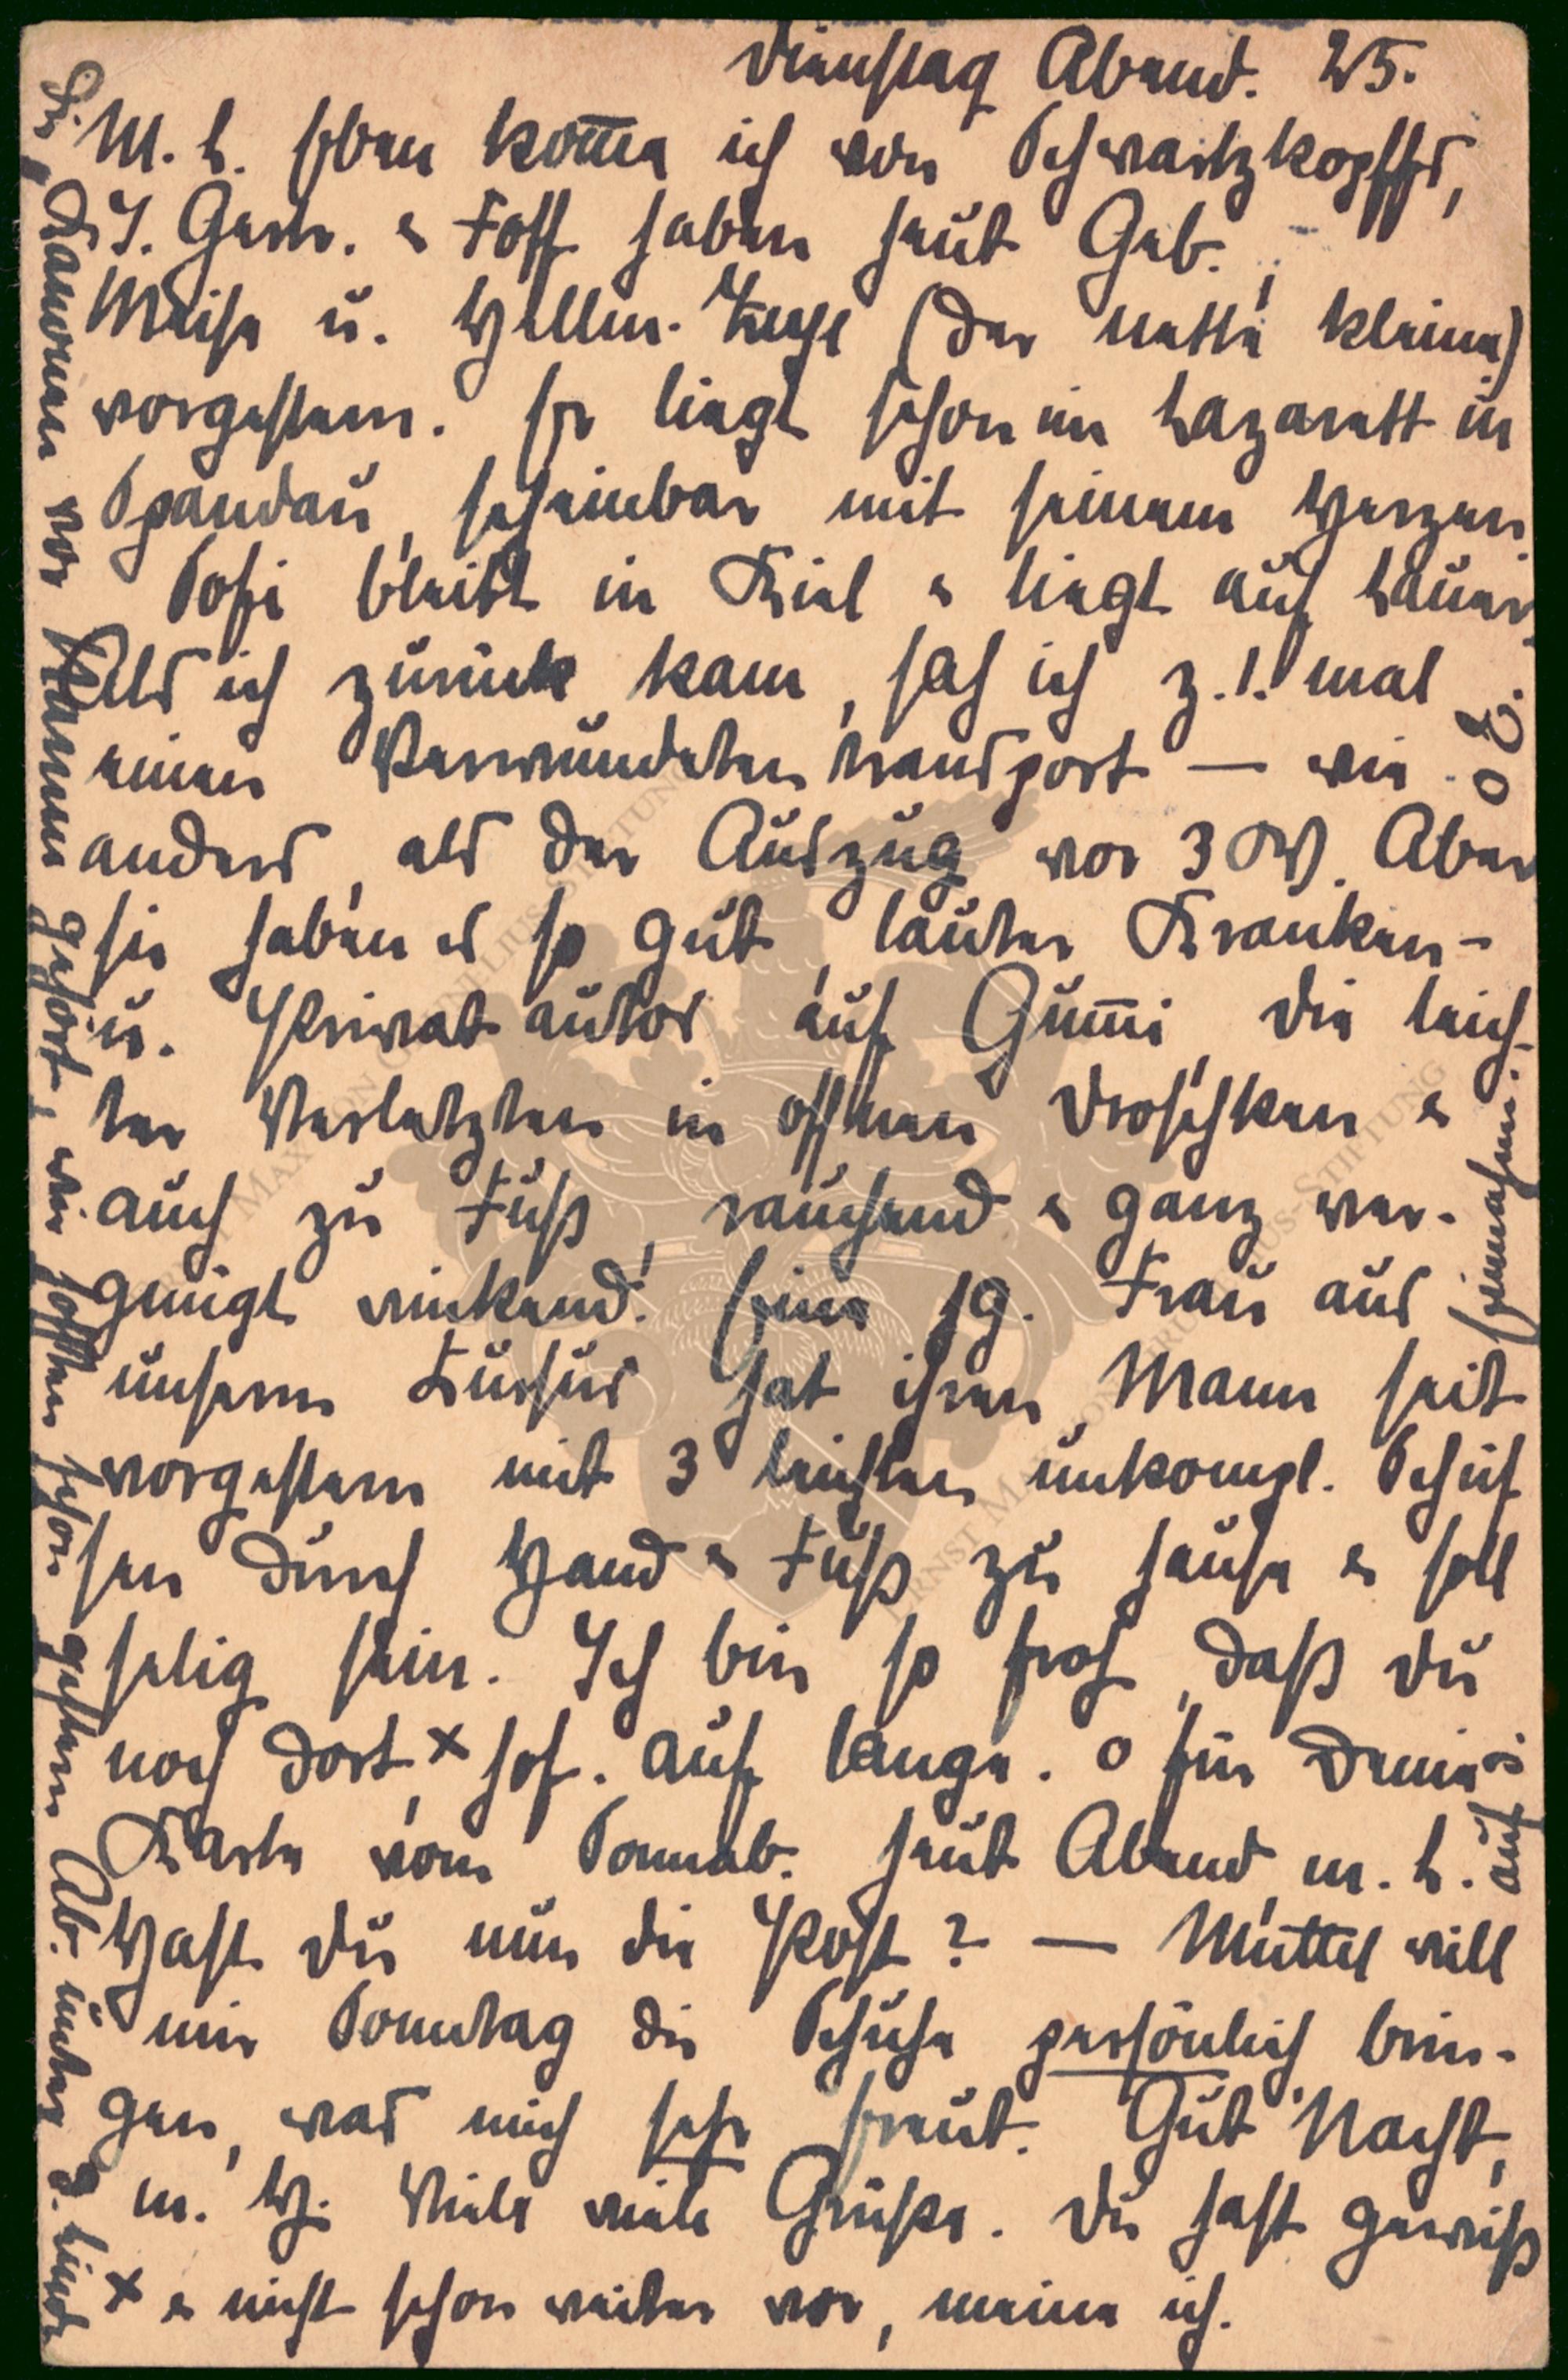 Dienstag Abend. 25.
M. L. Eben komme ich von Schwartzkopffs,
J. Gen. & Foff haben heut Geb.,
Meise u. Hellm. (der nette kleine)
vorgestern. Er liegt schon im Lazarett in
Spandau, scheinbar mit seinem Herzen.
Sofi bleibt in Kiel & liegt auf Lauer.
Als ich zurück kam, sah ich z. 1. mal
einen Verwundetentransport — wie
anders, als der Auszug vor 3 W. Aber
sie haben es so gut, lauter Kranken-
u. Privatautos auf Gummi die leich-
ter Verletzten in offnen Droschken &
auch zu Fuß, rauchend & ganz ver-
gnügt winkend. Eine jg. Frau aus
unserm Kursus hat ihren Mann seit
vorgestern mit 3 leichten unkompl. Schüs
sen durch Hand & Fuß zu hause & soll
selig sein. Ich bin so froh, daß Du
noch dort, x hof. auf lange. o für Deine
Karte vom Sonnab. heut Abend m. L.
Hast Du nun die Post? — Muttel will
mir Sonntag die Schuhe persönlich brin-
gen, was mich sehr freut. Gut Nacht,
m. H. Viele viele Grüße. Du hast gewiß
x & nicht schon weiter vor, meine ich.
Die Kanonen vor Namur gehört, wir hofften schon gestern Ab. unter d. Linden
auf Einnahme.
o E.